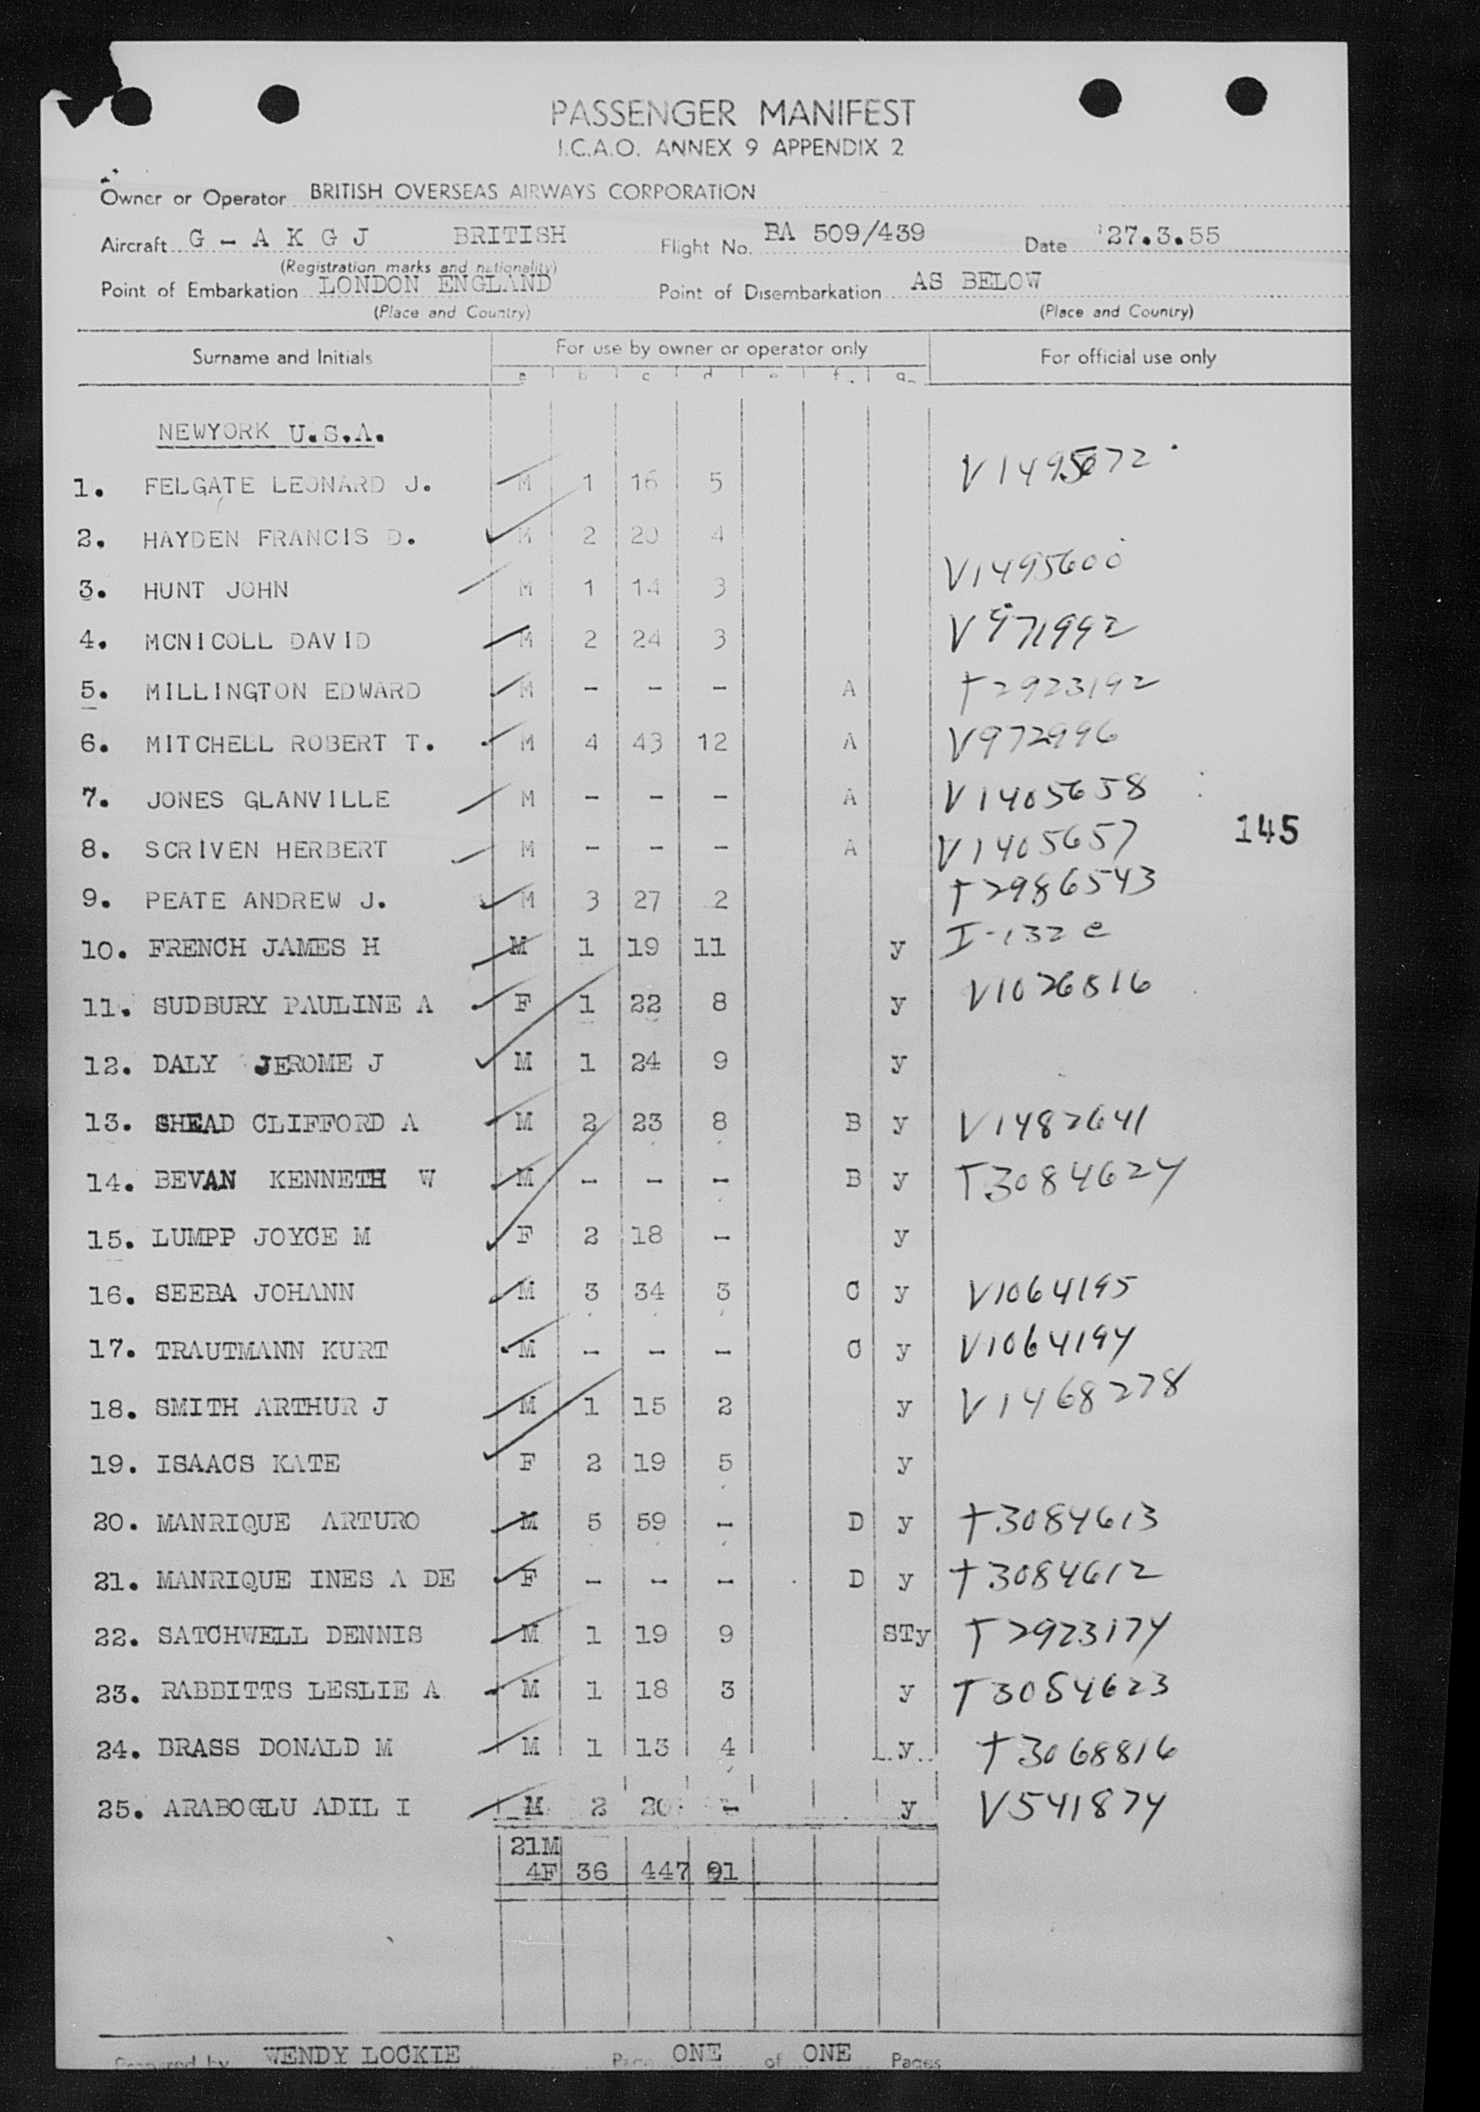 PASSENGER MANIFEST
I.C.A.O. ANNEX 9 APPENDIX 2
Owner or Operator BRITISH OVERSEAS AIRWAYS CORPORATION
Aircraft G - A K G J BRITISH Flight No. BA 509/439 Date 27.3.55
(Registration marks and nationality)
Point of Embarkation LONDON ENGLAND Point of Disembarkation AS BELOW
(Place and Country) (Place and Country)
Surname and Initials For use by owner or operator only For official use only
a b c d e f. g.
NEWYORK U.S.A.
1. FELGATE LEONARD J. M 1 16 5 V1495672
2. HAYDEN FRANCIS D. M 2 20 4
3. HUNT JOHN M 1 14 3 V1495600
4. MCNICOLL DAVID M 2 24 3 V971992
5. MILLINGTON EDWARD M - - - A T2923192
6. MITCHELL ROBERT T. M 4 43 12 A V972996
7. JONES GLANVILLE M - - - A V1405658
8. SCRIVEN HERBERT M - - - A V1405657 145
9. PEATE ANDREW J. M 3 27 2 T2986543
10. FRENCH JAMES H M 1 19 11 y I-132 e
11. SUDBURY PAULINE A F 1 22 8 y V1026816
12. DALY JEROME J M 1 24 9 y
13. SHEAD CLIFFORD A M 2 23 8 B y V1482641
14. BEVAN KENNETH W M - - - B y T3084624
15. LUMPP JOYCE M F 2 18 - y
16. SEEBA JOHANN M 3 34 3 C y V1064195
17. TRAUTMANN KURT M - - - C y V1064194
18. SMITH ARTHUR J M 1 15 2 y V1468278
19. ISAACS KATE F 2 19 5 y
20. MANRIQUE ARTURO M 5 59 - D y T3084613
21. MANRIQUE INES A DE F - - - D y T3084612
22. SATCHWELL DENNIS M 1 19 9 STy T2923174
23. RABBITTS LESLIE A M 1 18 3 y T3084623
24. BRASS DONALD M M 1 13 4 y T3068816
25. ARABOGLU ADIL I M 2 20 - y V541874
21M
4F 36 447 91
Prepared by WENDY LOCKIE Page ONE of ONE Pages